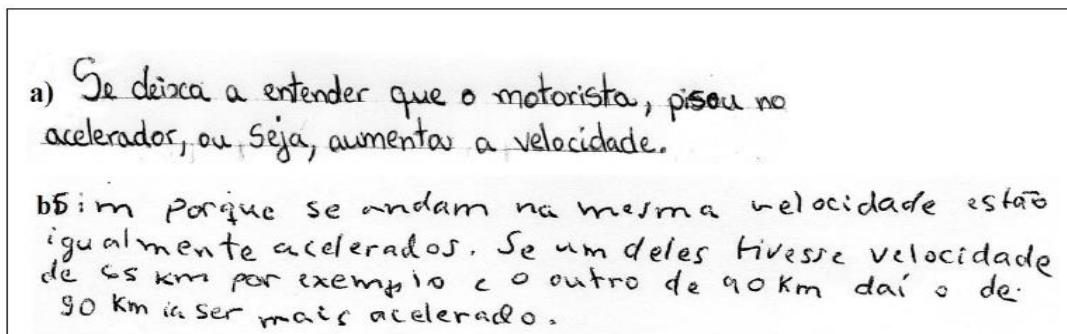 a) Se deixa a entender que o motorista, pisou no
acelerador, ou seja, aumentou a velocidade.
b) Sim porque se andam na mesma velocidade estão
igualmente acelerados. Se um deles tivesse velocidade
de 65 km por exemplo e o outro de 90 Km daí o de
90 Km ia ser mais acelerado.